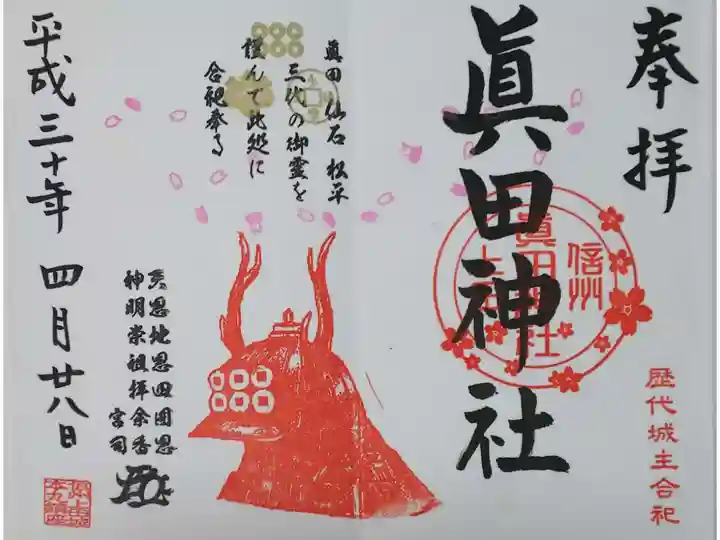 奉拝
信州
眞田神社
上田
歴代城主合祀
眞田 仙石 松平
三代の御霊を
謹んで此処に
合祀奉る
天恩地恩四囲恩
神明崇祖拝余香
宮司
平成三十年 四月廿八日